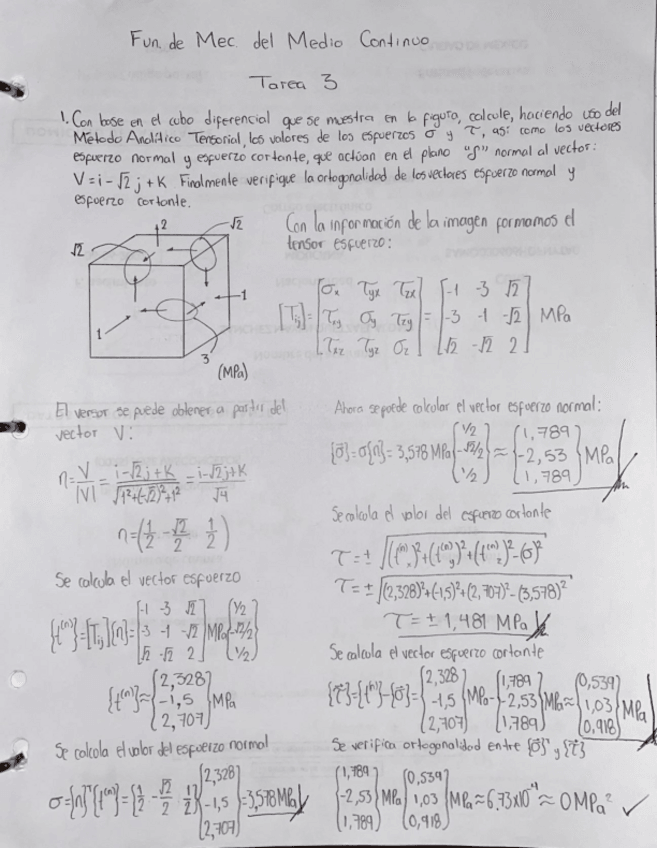 Fun. de Mec. del Medio Continuo
Tarea 3
1. Con base en el cubo diferencial que se muestra en la figura, calcule, haciendo uso del
Método Analítico Tensorial, los valores de los esfuerzos σ y τ, así como los vectores
esfuerzo normal y esfuerzo cortante, que actúan en el plano "f" normal al vector:
V=i-√2 j+K Finalmente verifique la ortogonalidad de los vectores esfuerzo normal y
esfuerzo cortante.
2
√2
√2
1
1
3
(MPa)
Con la información de la imagen formamos el
tensor esfuerzo:
[Tij]=[σx τyx τzx; τxy σy τzy; τxz τyz σz]=[-1 -3 √2; -3 -1 -√2; √2 -√2 2] MPa
El versor se puede obtener a partir del
vector V:
η=V/|V|=(i-√2j+K)/√(1²+(-√2)²+1²)=(i-√2j+K)/√4
η=(1/2 -√2/2 1/2)
Se calcula el vector esfuerzo
{t⁽ⁿ⁾}=[Tij]{η}=[-1 -3 √2; -3 -1 -√2; √2 -√2 2]MPa{1/2; -√2/2; 1/2}
{t⁽ⁿ⁾}≈{2,328; -1,5; 2,707}MPa
Se calcula el valor del esfuerzo normal
σ={η}ᵀ{t⁽ⁿ⁾}={1/2 -√2/2 1/2}{2,328; -1,5; 2,707}=3,578MPa
Ahora se puede calcular el vector esfuerzo normal:
{σ}=σ{η}=3,578MPa{1/2; -√2/2; 1/2}≈{1,789; -2,53; 1,789}MPa
Se calcula el valor del esfuerzo cortante
τ=±√((t⁽ⁿ⁾x)²+(t⁽ⁿ⁾y)²+(t⁽ⁿ⁾z)²-(σ)²)
τ=±√((2,328)²+(-1,5)²+(2,707)²-(3,578)²)
τ=±1,481 MPa
Se calcula el vector esfuerzo cortante
{τ}={t⁽ⁿ⁾}-{σ}={2,328; -1,5; 2,707}MPa-{1,789; -2,53; 1,789}MPa≈{0,539; 1,03; 0,918}MPa
Se verifica ortogonalidad entre {σ} y {τ}
{1,789; -2,53; 1,789}MPa{0,539; 1,03; 0,918}MPa≈6,73x10⁻⁴≈0MPa² ✓